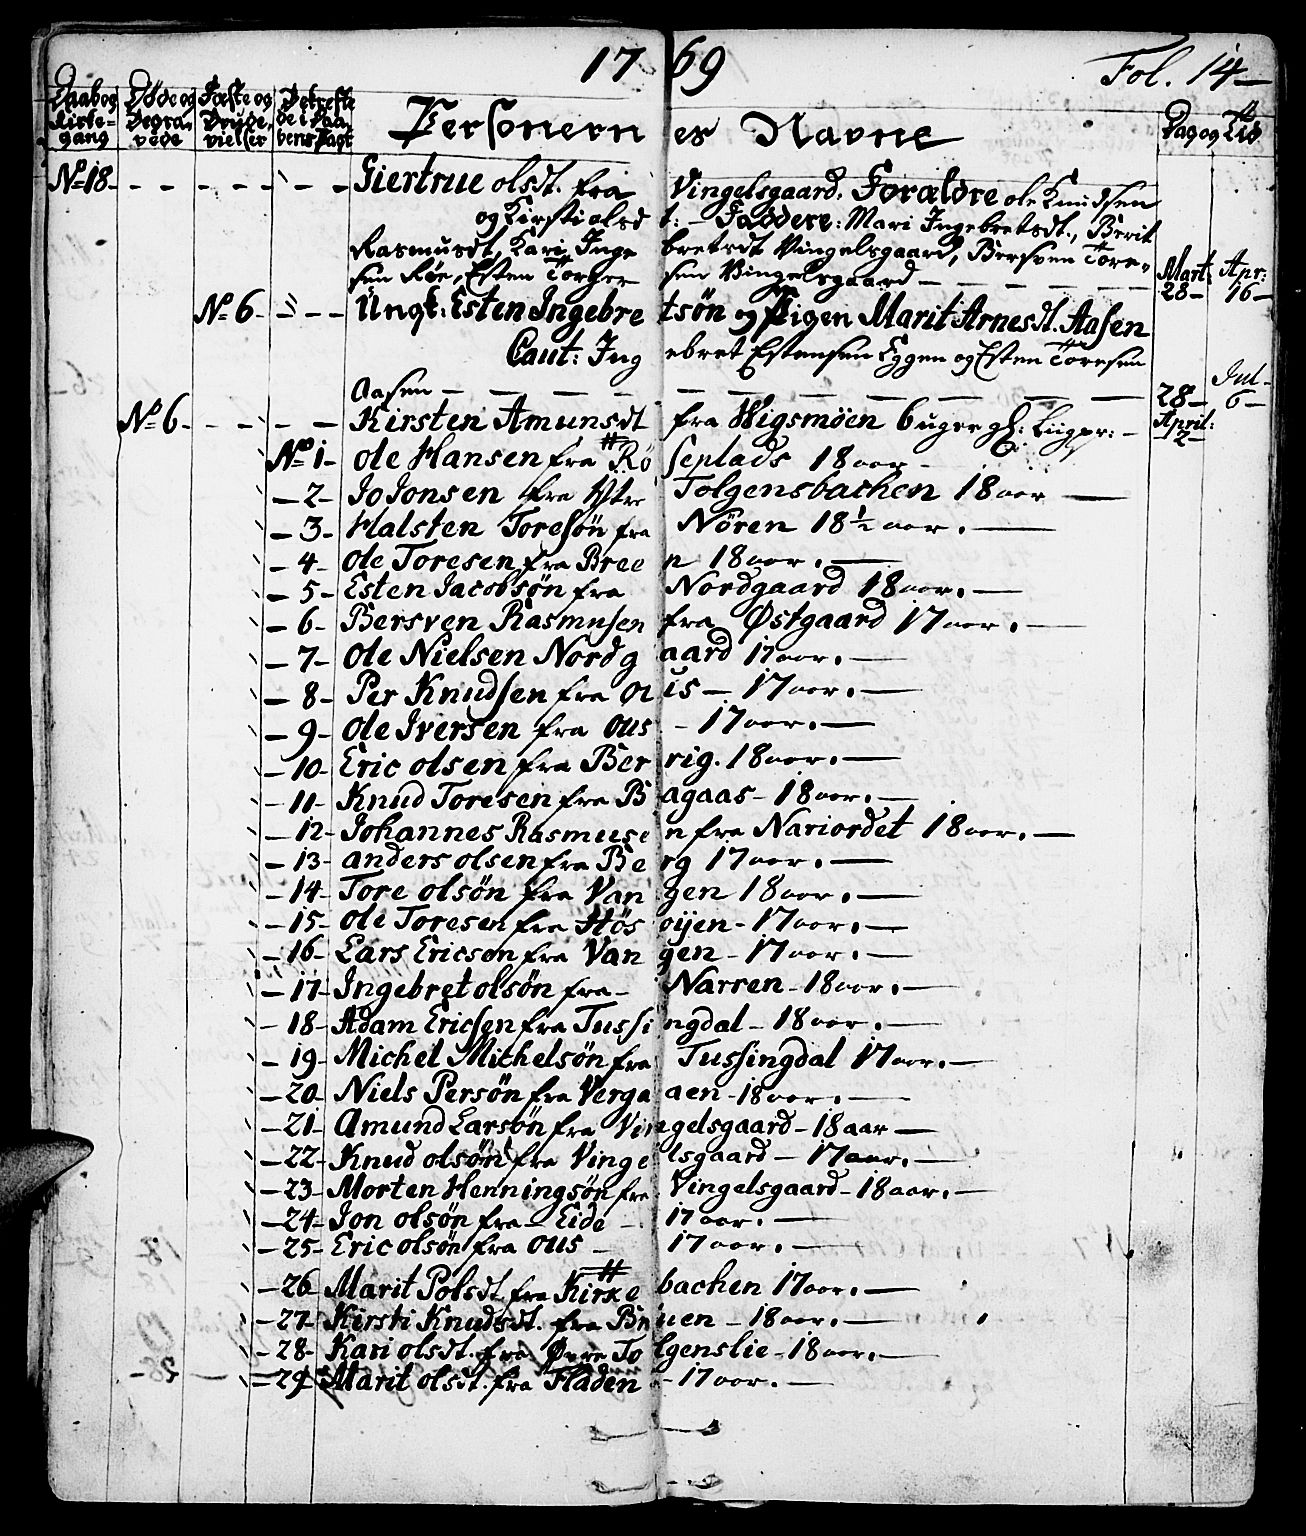 1769
Fol. 14
Daab og Kirkegang
Døde og Begravede
Fæste og Brudevielser
De trefte de i Daabens Pagt
Personernes Navne
Dag og Tid
No 18 - - - - - - - - Giertrue olsdt. fra Vingelsgaard, Forældre ole Knudsen
og Kirsti olsdt: - Faddere: Mari Ingebretsdt., Berit
Rasmusdt, Kari Ingebretsdt Vingelsgaard, Bersven Tore-
sen Røe, Esten Torger sen Vingelsgaard - - - - - - Mart: 28- Apr: 16-
No 6 - - - Ungk: Esten Ingebretsøn og Pigen Marit Arnesdt. Aasen
Caut: Ingebret Estensen Eggen og Esten Toresen
Aasen - - - - - - - 28- Jul- 6-
No 6 - - - - - Kirsten Amunsdt fra Wigsmøen 6 uger gl: Liigpr: - April: 2-
No 1- Ole Hansen fra Røseplads 18 aar -
- 2- Jo Jonsen fra Ytre Tolgensbachen 18 aar -
- 3- Halsten Toresøn fra Nören 18 1/2 aar. -
- 4- Ole Toresen fra Breen 18 aar. -
- 5- Esten Jacobsøn fra Nordgaard 18 aar. -
- 6- Bersven Rasmusen fra Østgaard 17 aar. -
- 7- Ole Nielsen Nordgaard 17 aar. -
- 8- Per Knudsen fra Ous - 17 aar. -
- 9- Ole Iversen fra Ous - 17 aar. -
- 10- Eric olsen fra Berrig. 18 aar. -
- 11- Knud Toresen fra Bagaas - 18 aar. -
- 12- Johannes Rasmusen fra Nariordet 18 aar. -
- 13- anders olsen fra Berg 17 aar. -
- 14- Tore olsøn fra Vangen 18 aar. -
- 15- Ole Toresen fra Høsøijen - 17 aar. -
- 16- Lars Ericsen fra Vangen - 17 aar. -
- 17- Ingebret olsøn fra - Narren - 18 aar. -
- 18- Adam Ericsen fra Tussingdal - 18 aar. -
- 19- Michel Michelsøn fra Tussingdal 17 aar. -
- 20- Niels Persøn fra Vergaaen - 18 aar. -
- 21- Amund Larsøn fra Vingelsgaard - 18 aar -
- 22- Knud olsøn fra Vingelsgaard - 17 aar. -
- 23- Morten Henningsøn fra Vingelsgaard - 18 aar. -
- 24- Jon olsøn fra - Eide - 17 aar. -
- 25- Eric olsøn fra Ous - 17 aar. -
- 26 Marit Polsdt. fra Kirkebachen 17 aar. -
- 27- Kirsti Knudsdt. fra Bruen - 18 aar. -
- 28- Kari olsdt. fra Øvre Tolgenslie - 18 aar. -
- 29 Marit olsdt. fra Fladen - 17 aar. -